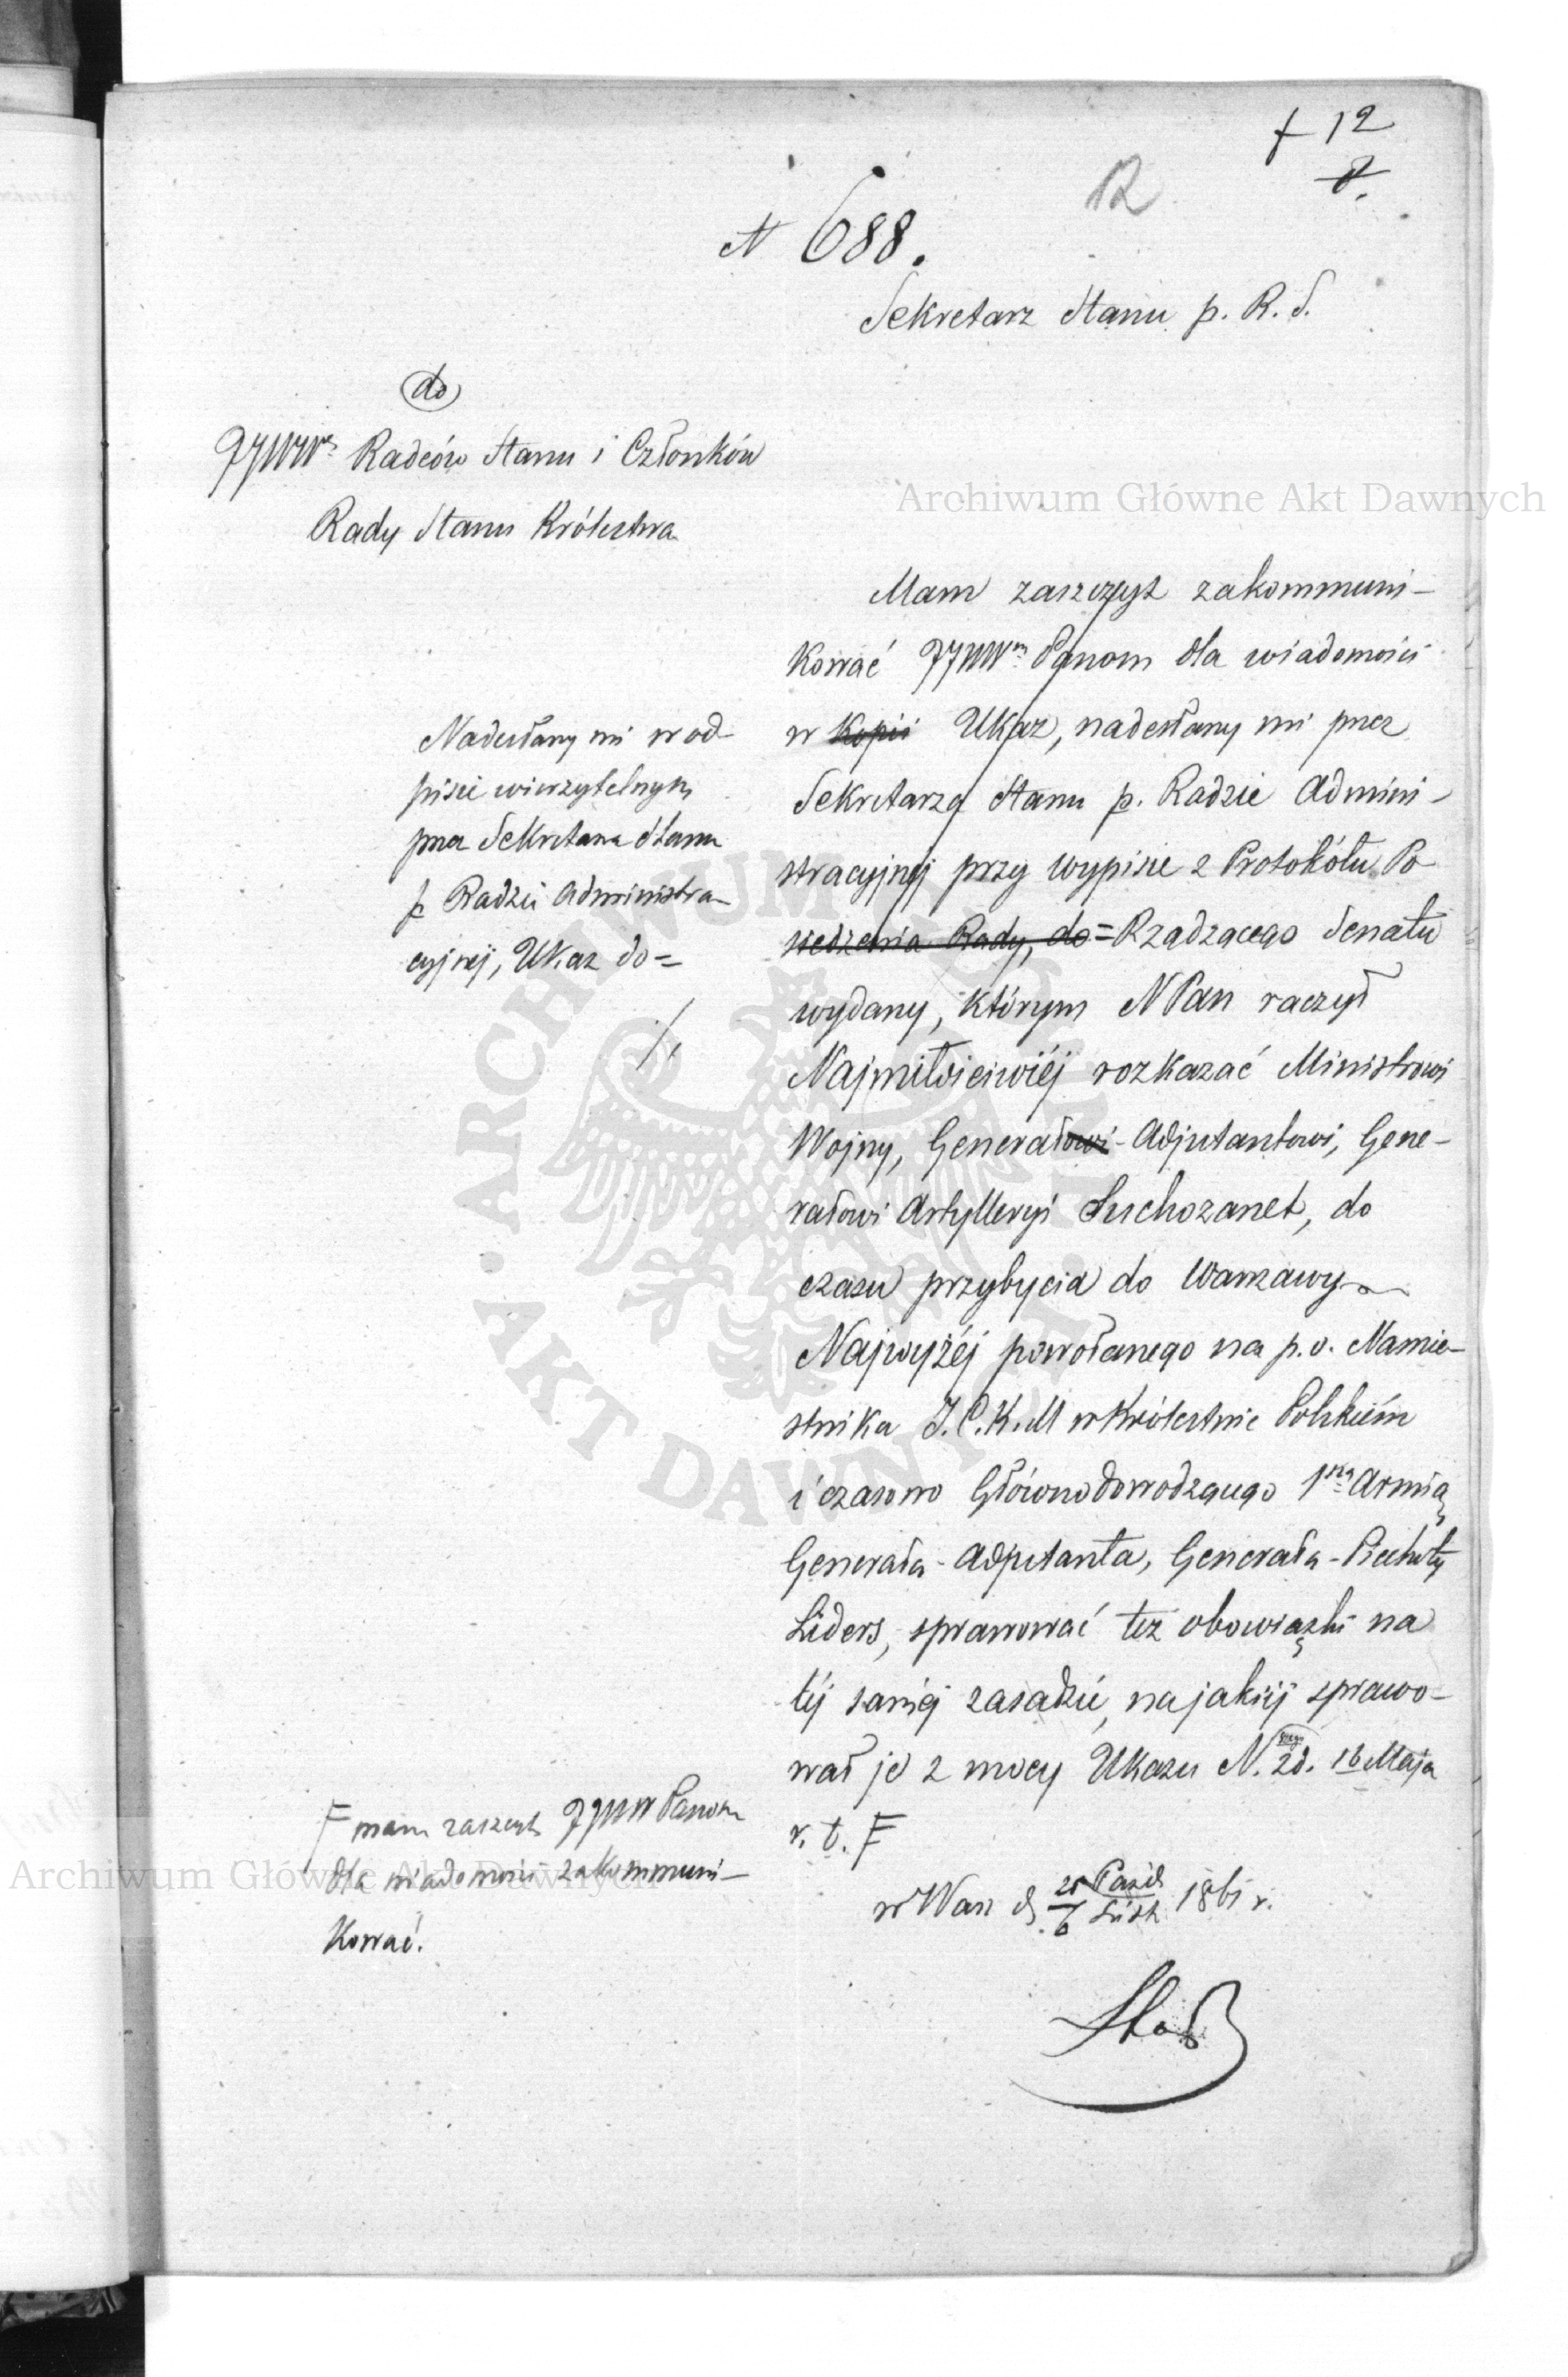 f 12
12
N 688.
Sekretarz Stanu p. R. S.
do
JJWW Radców Stanu i Członków
Rady Stanu Królestwa
Mam zaszczyt zakommuni-
kować JJWWm Panom dla wiadomości
w kopii Ukaz, nadesłany mi przez
Sekretarza Stanu p. Radzie Admini-
stracyjnej przy wypisie z Protokółu Po
siedzenia Rady, do = Rządzącego Senatu
wydany, którym NPan raczył
Najmiłościwiéj rozkazać Ministrowi
Wojny, Generałowi-Adjutantowi, Gene-
rałowi Artylleryi Suchozanet, do
czasu przybycia do Warszawy
Najwyżéj powołanego na p.o. Namie-
stnika J.C.K.M w Królestwie Polskiém
i czasowo Głównodowodzącego 1szą Armią
Generała-Adjutanta, Generała-Piechoty
Liders, sprawować też obowiązki na
téj saméj zasadzie, na jakiéj sprawo-
wał je z mocy Ukazu N. 2d. 16 Maja
r. t. F
w Warsz d 25 Paźd / 6 List 1861 r.
Nadesłany mi w od-
pisie wierzytelnym
przez Sekretarza Stanu
p Radzie Administra-
cyjnej, Ukaz do =
F mam zaszczyt JJWW Panom
dla wiadomości zakommuni-
kować.
Archiwum Główne Akt Dawnych
Archiwum Główne Akt Dawnych
· ARCHIWUM GŁÓWNE · AKT DAWNYCH